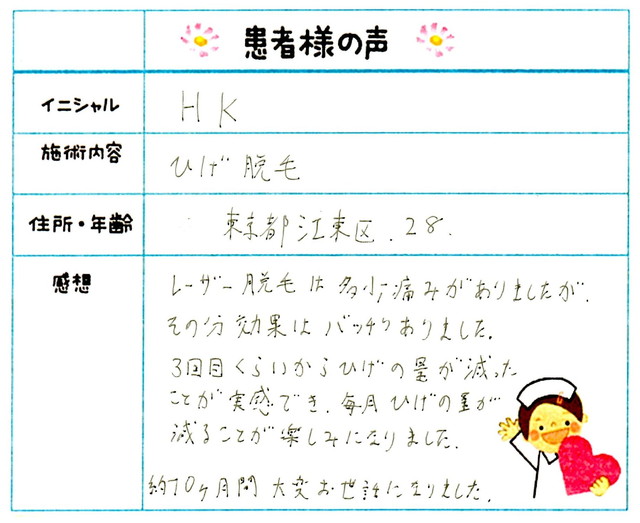 患者様の声
イニシャル
H K
施術内容
ひげ 脱毛
住所・年齢
東京都江東区. 28.
感想
レーザー脱毛は多少痛みがありましたが、
その分効果はバッチリありました。
3回目くらいからひげの量が減った
ことが実感でき、毎月ひげの量が
減ることが楽しみになりました。
約10ヶ月間 大変お世話になりました。